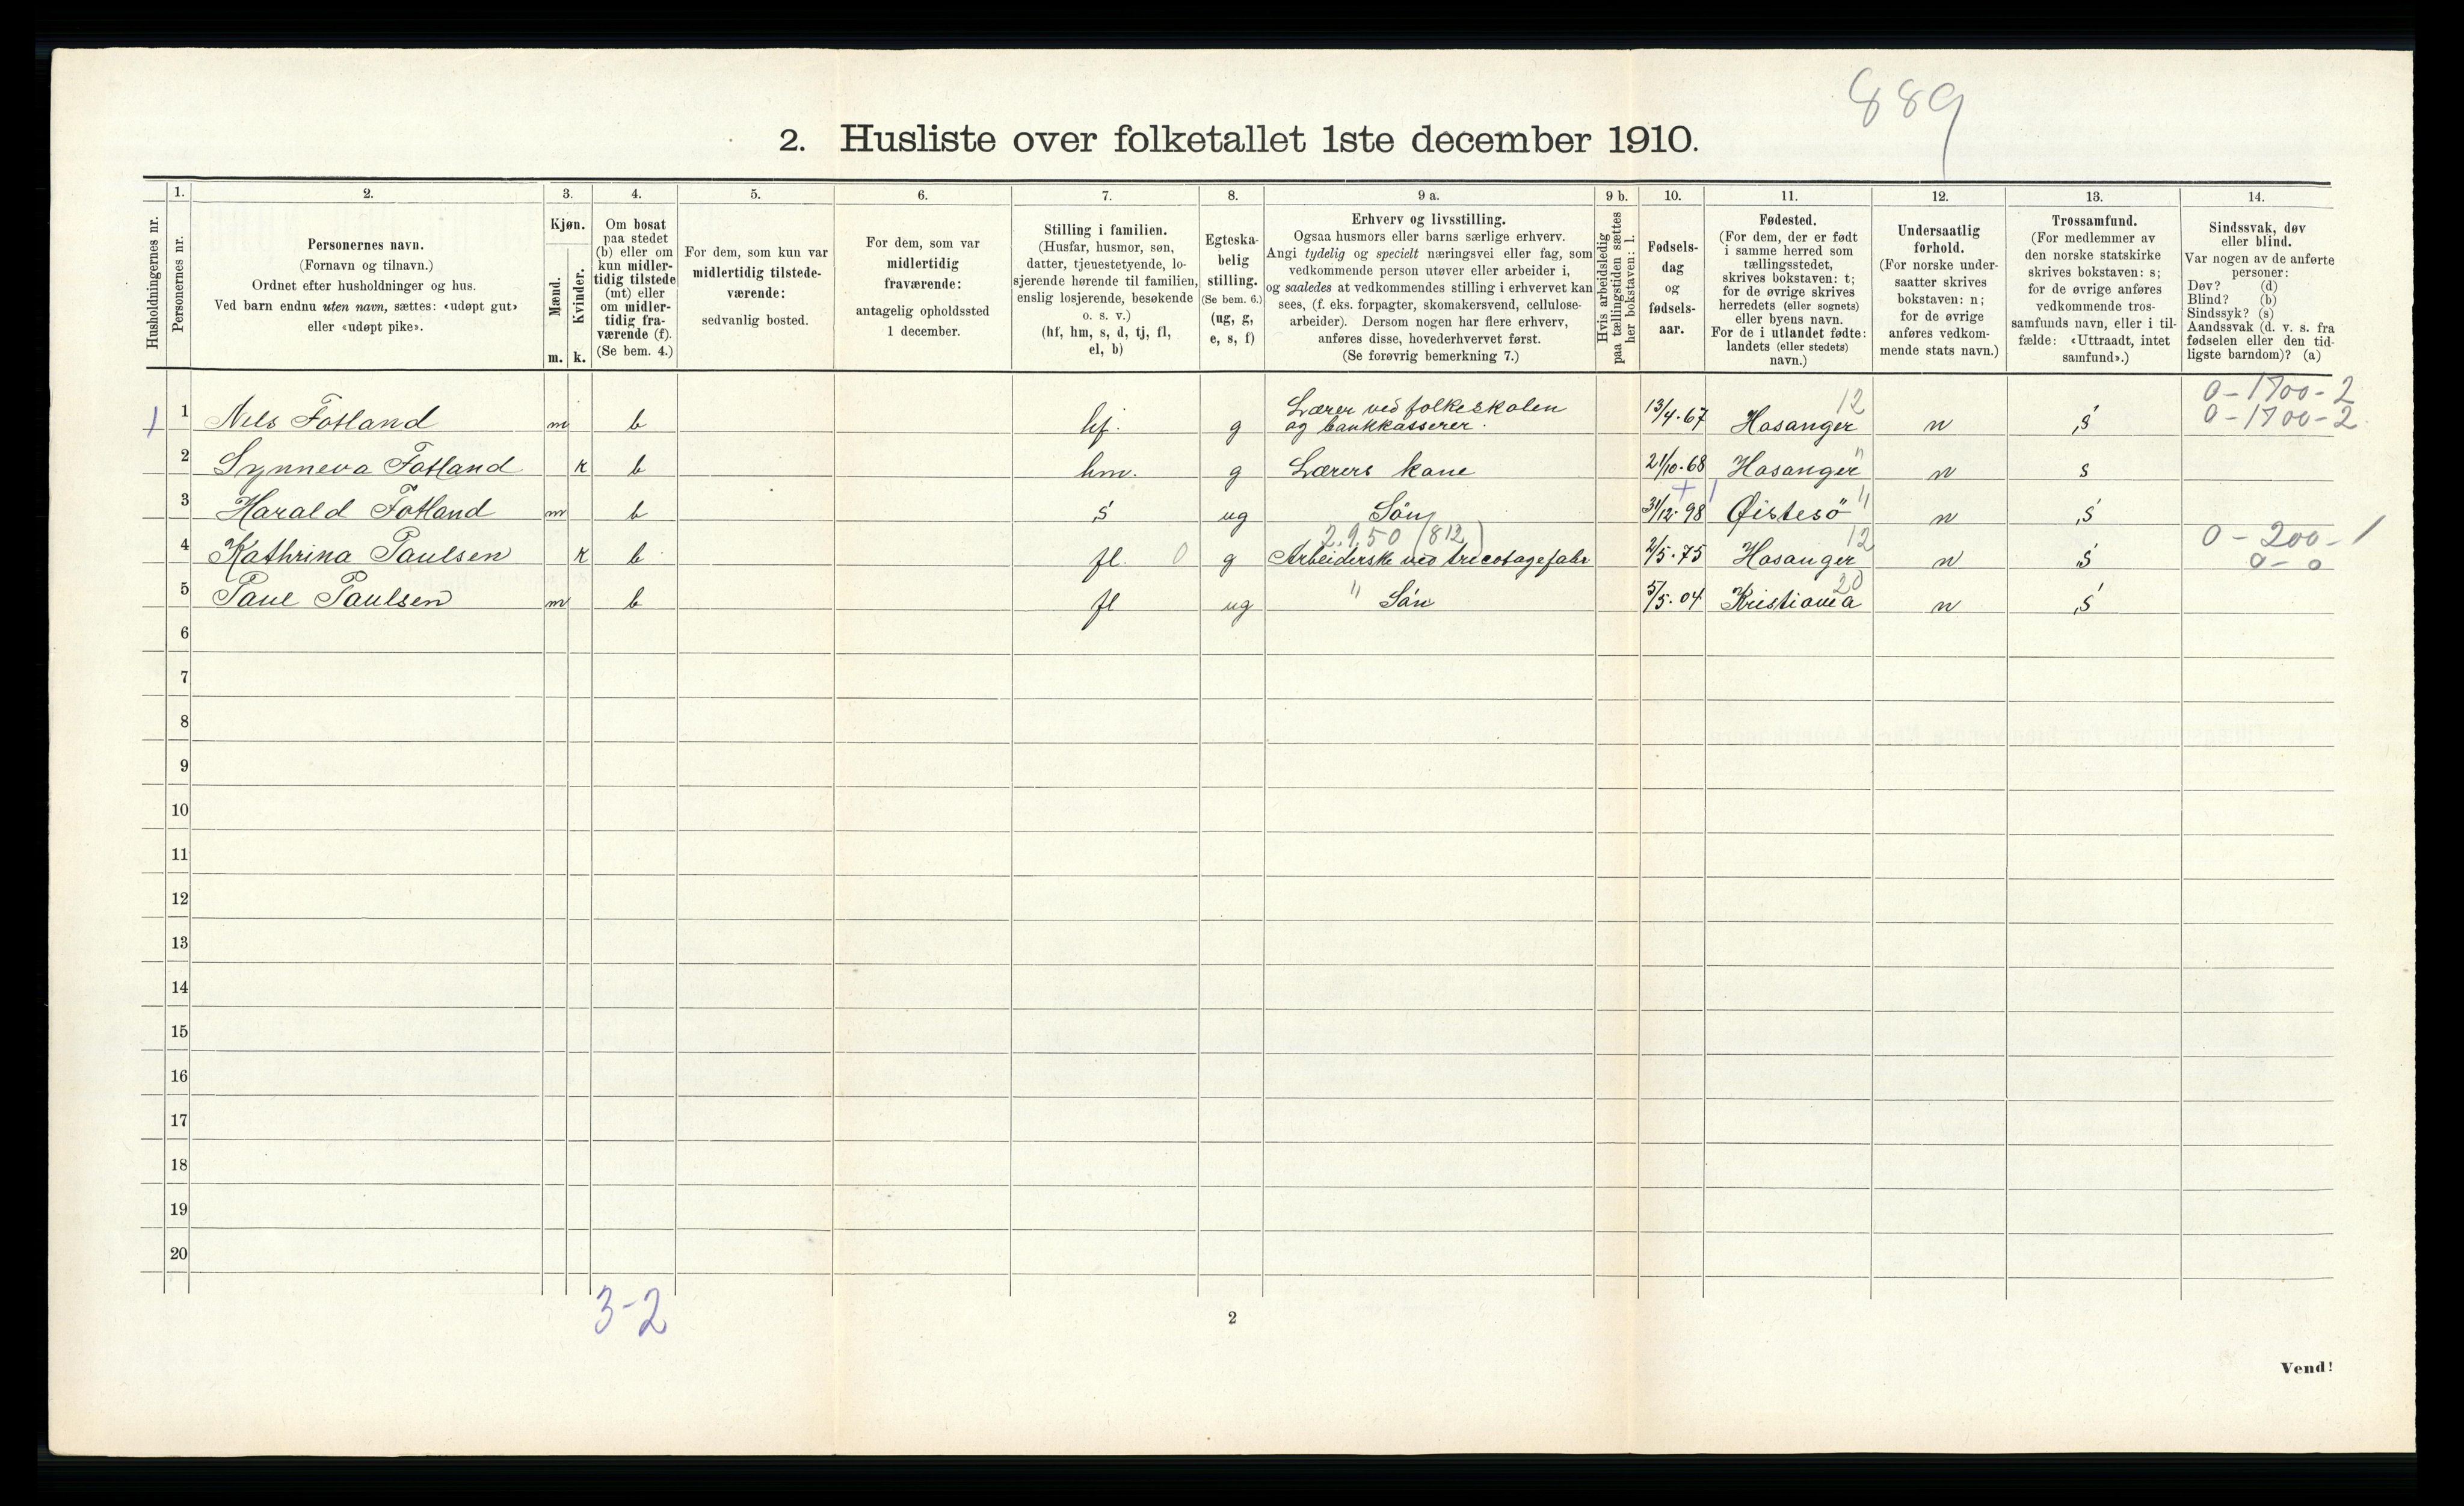 889
2. Husliste over folketallet 1ste december 1910.
1. 2. 3. 4. 5. 6. 7. 8. 9 a. 9 b. 10. 11. 12. 13. 14.
Husholdningernes nr.
Personernes nr.
Personernes navn.
(Fornavn og tilnavn.)
Ordnet efter husholdninger og hus.
Ved barn endnu uten navn, sættes: «udøpt gut»
eller «udøpt pike».
Kjøn.
Mænd.
Kvinder.
m. k.
Om bosat
paa stedet
(b) eller om
kun midler-
tidig tilstede
(mt) eller
om midler-
tidig fra-
værende (f).
(Se bem. 4.)
For dem, som kun var
midlertidig tilstede-
værende:
sedvanlig bosted.
For dem, som var
midlertidig
fraværende:
antagelig opholdssted
1 december.
Stilling i familien.
(Husfar, husmor, søn,
datter, tjenestetyende, lo-
sjerende hørende til familien,
enslig losjerende, besøkende
o. s. v.)
(hf, hm, s, d, tj, fl,
el, b)
Egteska-
belig
stilling.
(Se bem. 6.)
(ug, g,
e, s, f)
Erhverv og livsstilling.
Ogsaa husmors eller barns særlige erhverv.
Angi tydelig og specielt næringsvei eller fag, som
vedkommende person utøver eller arbeider i,
og saaledes at vedkommendes stilling i erhvervet kan
sees, (f. eks. forpagter, skomakersvend, cellulose-
arbeider). Dersom nogen har flere erhverv,
anføres disse, hovederhvervet først.
(Se forøvrig bemerkning 7.)
Hvis arbeidsledig
paa tællingstiden sættes
her bokstaven: l.
Fødsels-
dag
og
fødsels-
aar.
Fødested.
(For dem, der er født
i samme herred som
tællingsstedet,
skrives bokstaven: t;
for de øvrige skrives
herredets (eller sognets)
eller byens navn.
For de i utlandet fødte:
landets (eller stedets)
navn.)
Undersaatlig
forhold.
(For norske under-
saatter skrives
bokstaven: n;
for de øvrige
anføres vedkom-
mende stats navn.)
Trossamfund.
(For medlemmer av
den norske statskirke
skrives bokstaven: s;
for de øvrige anføres
vedkommende tros-
samfunds navn, eller i til-
fælde: «Uttraadt, intet
samfund».)
Sindssvak, døv
eller blind.
Var nogen av de anførte
personer:
Døv? (d)
Blind? (b)
Sindssyk? (s)
Aandssvak (d. v. s. fra
fødselen eller den tid-
ligste barndom)? (a)
0-1700-2
1 1 Nels Fotland m b hf. g Lærer ved folkeskolen og bankkasserer. 13/4.67 Hosanger 12 n s 0-1700-2
2 Synneva Fotland k b hm. g Lærers kone 21/10.68 Hosanger " n s
3 Harald Fotland m b s ug Sön 31/12.98 Øistesö " n s
2.950 (812) 12 0-200-1
4 Kathrina Paulsen k b fl. 0 g Arbeiderske ved tricotagefabr. 2/5.75 Hosanger n s 0-0
5 Paul Paulsen m b fl ug " Sön 5/5.04 Kristiania 20 n s
6
7
8
9
10
11
12
13
14
15
16
17
18
19
20
3-2
2
Vend!